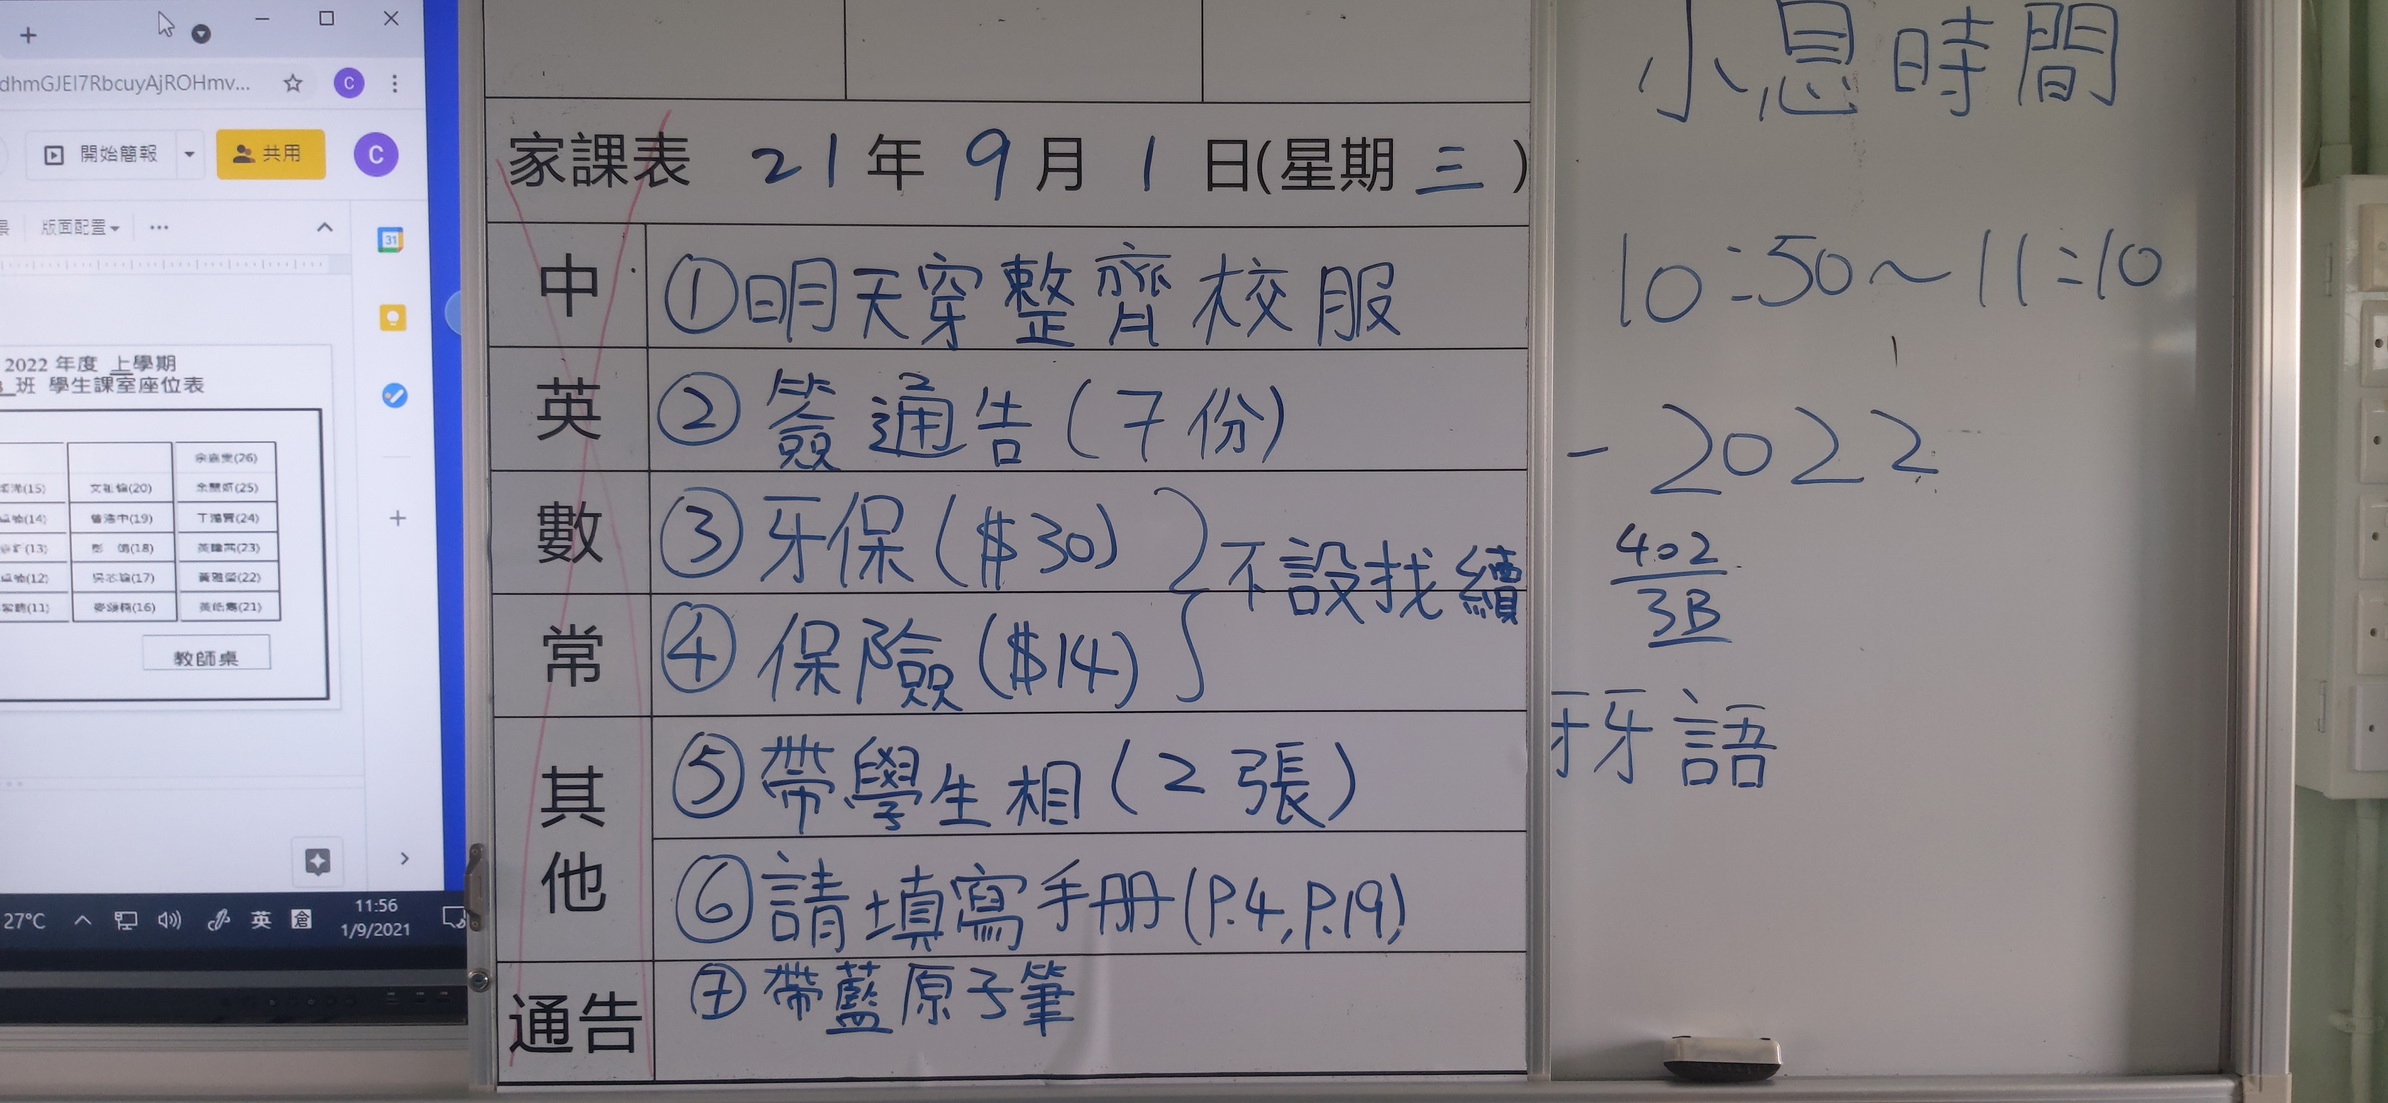 dhmGJEI7RbcuyAjROHmv...
C
開始簡報
共用
C
版面配置
31
2022 年度 上學期
班 學生課室座位表
(26)
(15) 文 (20) (25)
(14) (19) (24)
(13) (18) (23)
(12) (17) (22)
(11) (16) (21)
教師桌
27°C
英
倉
11:56
1/9/2021
家課表 21年 9月 1日(星期三)
中
①明天穿整齊校服
英
②簽通告(7份)
數
③牙保($30)
不設找續
常
④保險($14)
其他
⑤帶學生相(2張)
⑥請填寫手册(P.4,P.19)
通告
⑦帶藍原子筆
小息時間
10:50~11:10
-2022
402
3B
牙語